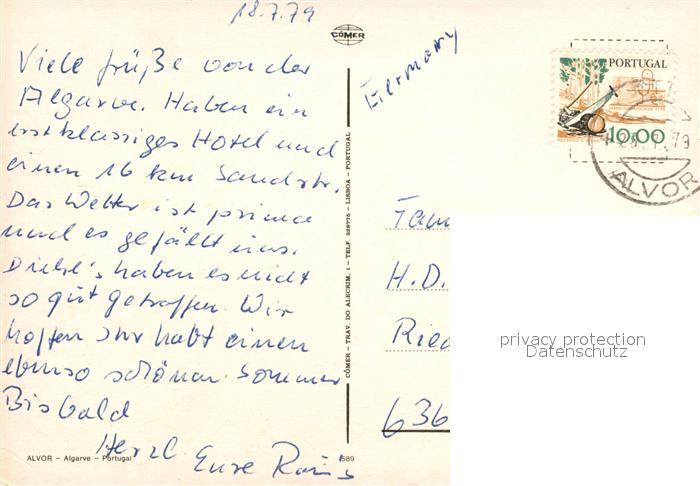 18.7.79
CÓMER
Viele Grüße von der
Algarve. Haben ein
erstklassiges Hotel und
einen 16 km Sandstr.
Das Wetter ist prima
und es gefällt uns.
haben es nicht
so gut getroffen. Wir
hoffen Ihr habt einen
ebenso schönen Sommer
Bis bald
Herzl. Eure
ALVOR – Algarve – Portugal
589
CÓMER – TRAV. DO ALECRIM, 1 – TELF. 328775 – LISBOA – PORTUGAL
Germany
PORTUGAL
10$00
79
ALVOR
Fam
H.D.
Ried
636
privacy protection
Datenschutz